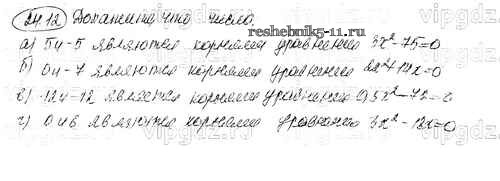 24.12 Докажите, что число:
а) 5 и -5 являются корнями уравнения 3x²-75=0
б) 0 и -7 являются корнями уравнения 2x²+14x=0
в) -12 и 12 являются корнями уравнения 0,5x²-72=0
г) 0 и 6 являются корнями уравнения 3x²-18x=0
reshebnik5-11.ru
vipgdz.com